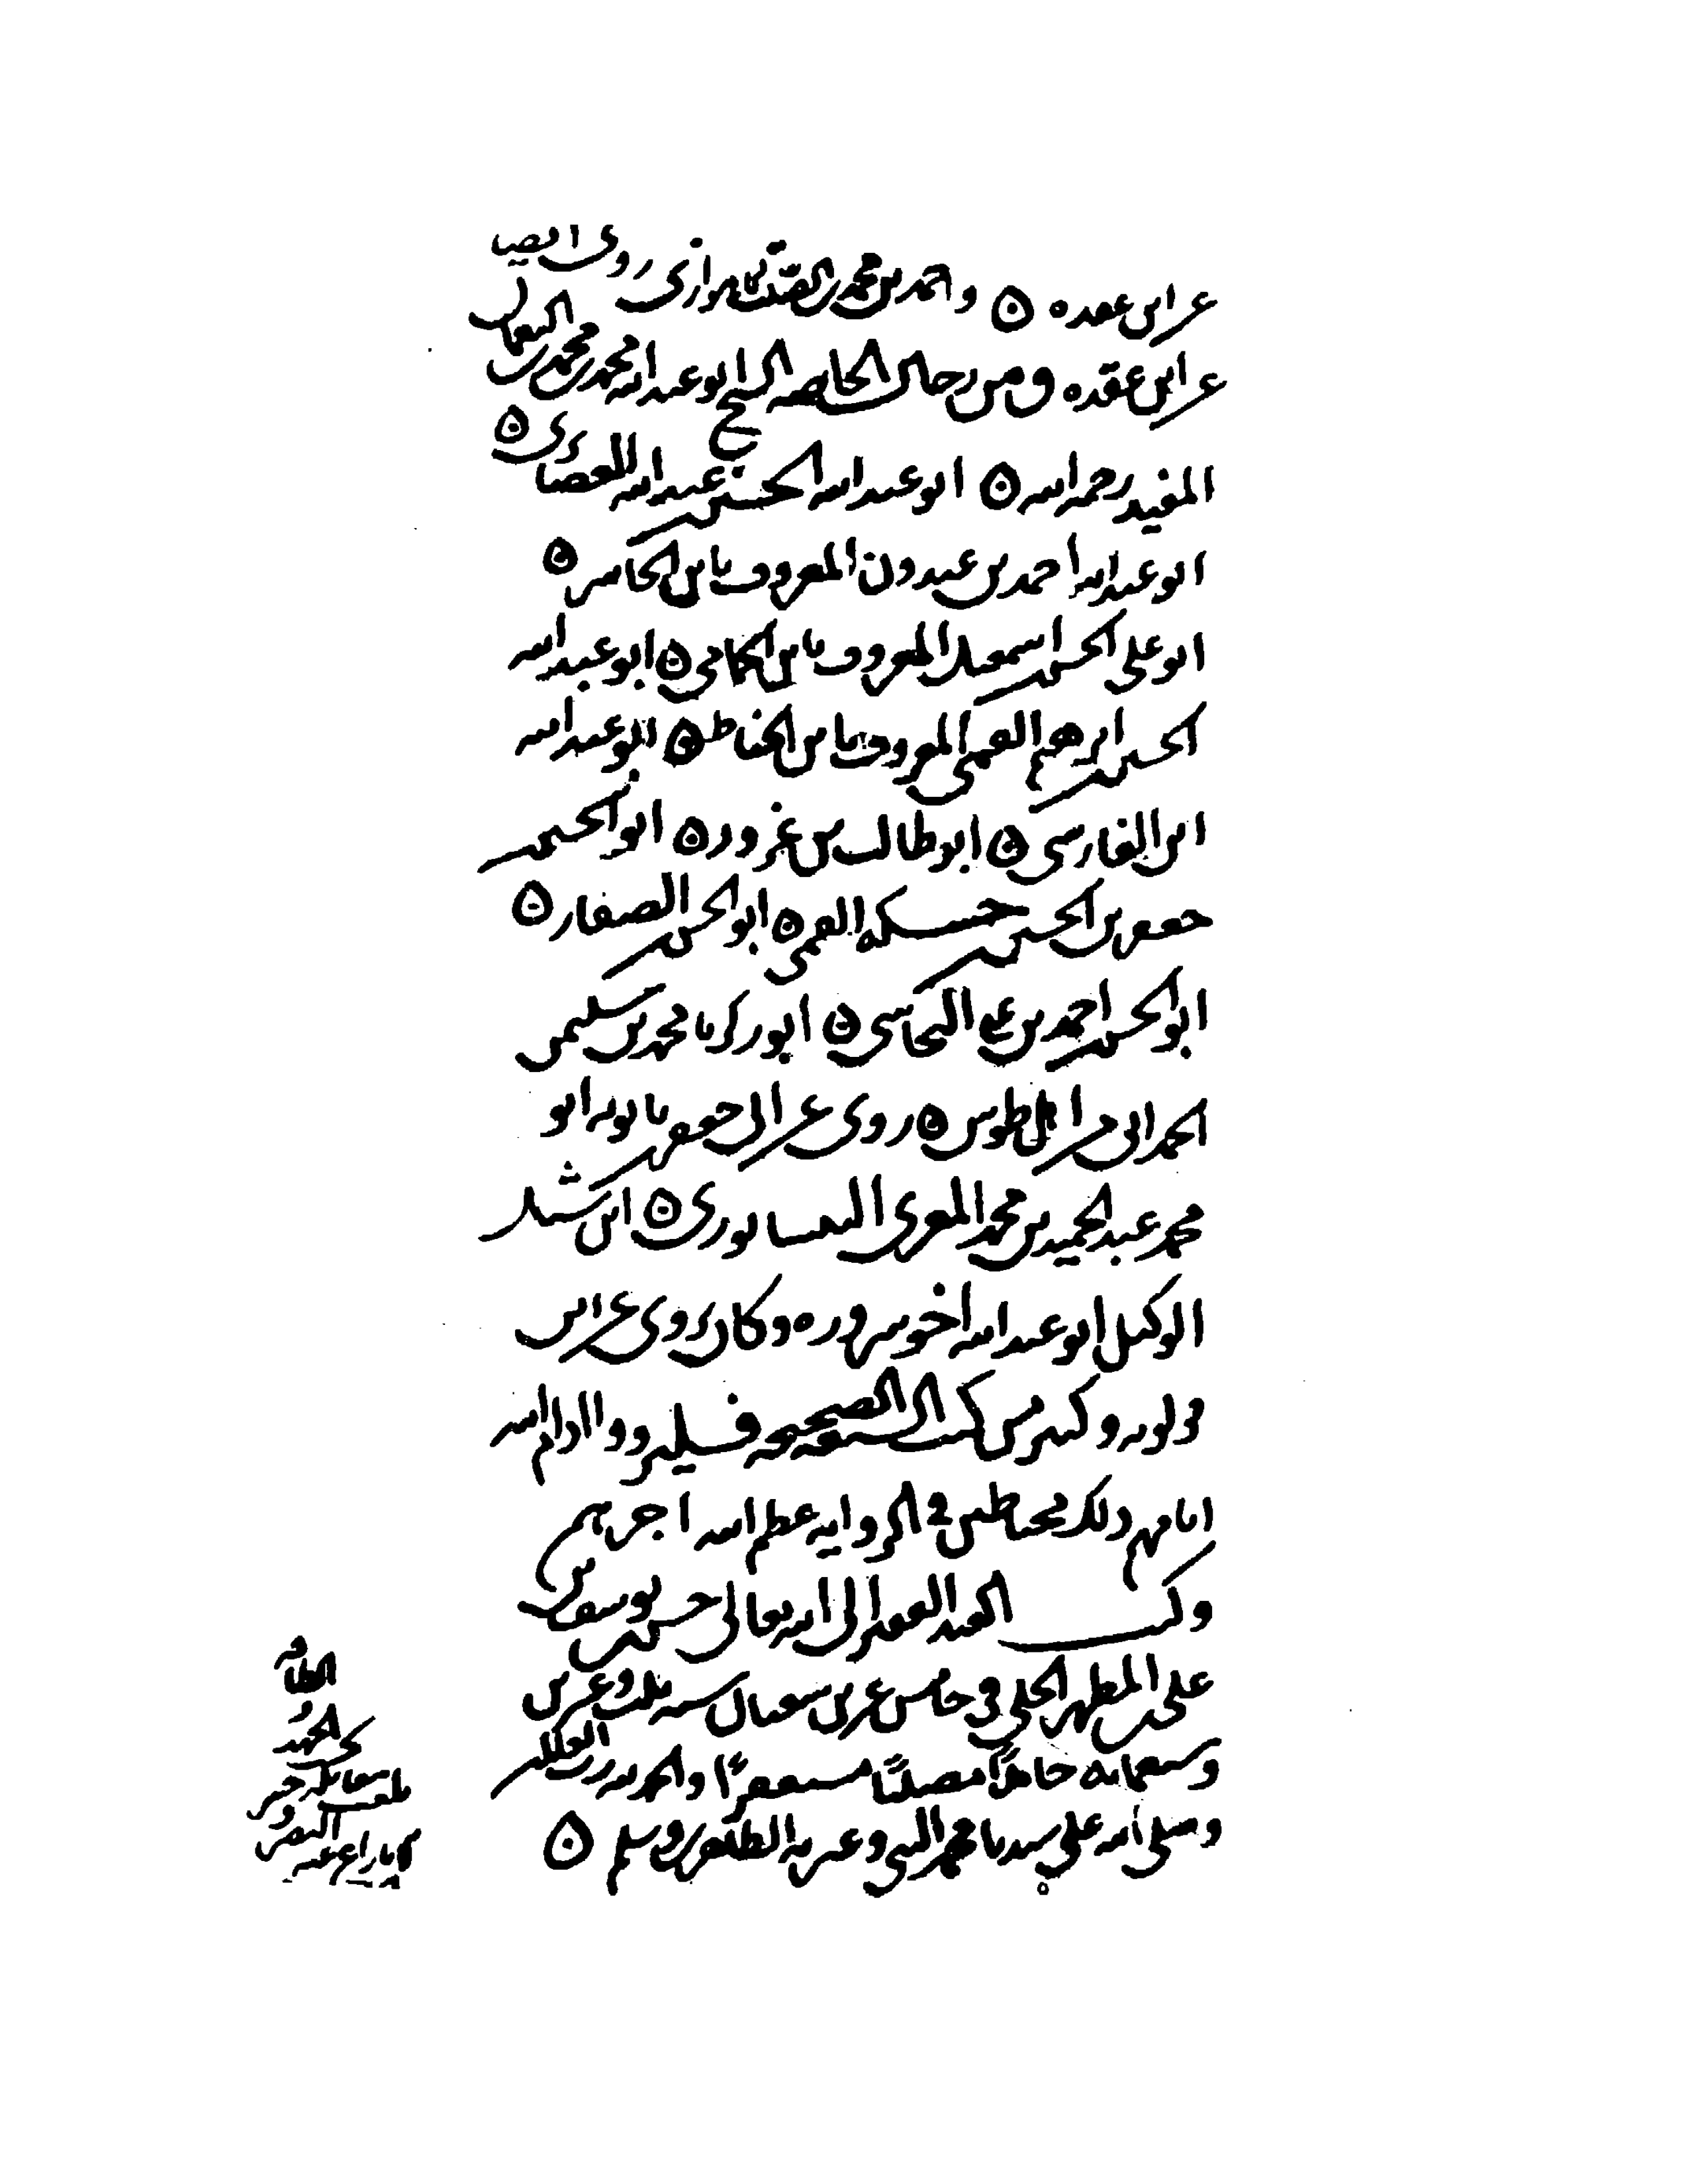 عن ابن عقده ۞ واحمد بن محمد بن الصلت الاهوازي روى ايضا
عن ابن عقده ومن رجال الخاصه الشيخ ابو عبد الله محمد بن محمد بن النعمان
المفيد رحمه الله ۞ ابو عبد الله الحسين بن عبيد الله الغضايرى ۞
ابو عبد الله احمد بن عبدون المعروف بابن الحاشر ۞
ابو على الحسن بن اسمعيل المعروف بابن الحمامي ۞ ابو عبد الله
الحسين بن ابرهيم القمى المعروف بابن الخياط ۞ ابو عبد الله
ابن الفارسي ۞ ابو طالب بن غرور ۞ ابو الحسين
جعفر بن الحسين حسكه القمى ۞ ابو الحسن الصفار ۞
ابو الحسين احمد بن علي النجاشى ۞ ابو زكريا محمد بن سليمن
الحمدانى من اهل طوس ۞ روى عن ابى جعفر بن بابويه ابو
محمد عبد الحميد بن محمد المقرى النيسابورى ۞ ابن شبل
الوكيل ابو عبد الله اخو سروره وكان يروى عن ابن
قولويه وكثير من كتب الشيعه الصحيحه فليرووا ادام الله
ايامهم ذلك محتاطين في الروايه عظم الله اجرهم
وكتب العبد الفقير الى الله تعالى حسن بن يوسف بن
على بن المطهر الحلي في خامس عشرين شعبان سنه ثلث وعشرين
وسبعمايه حامدا مصليا مستغفرا والحمد لله رب العالمين
وصلى الله على سيدنا محمد النبي وعترته الطاهرين وسلم ۞